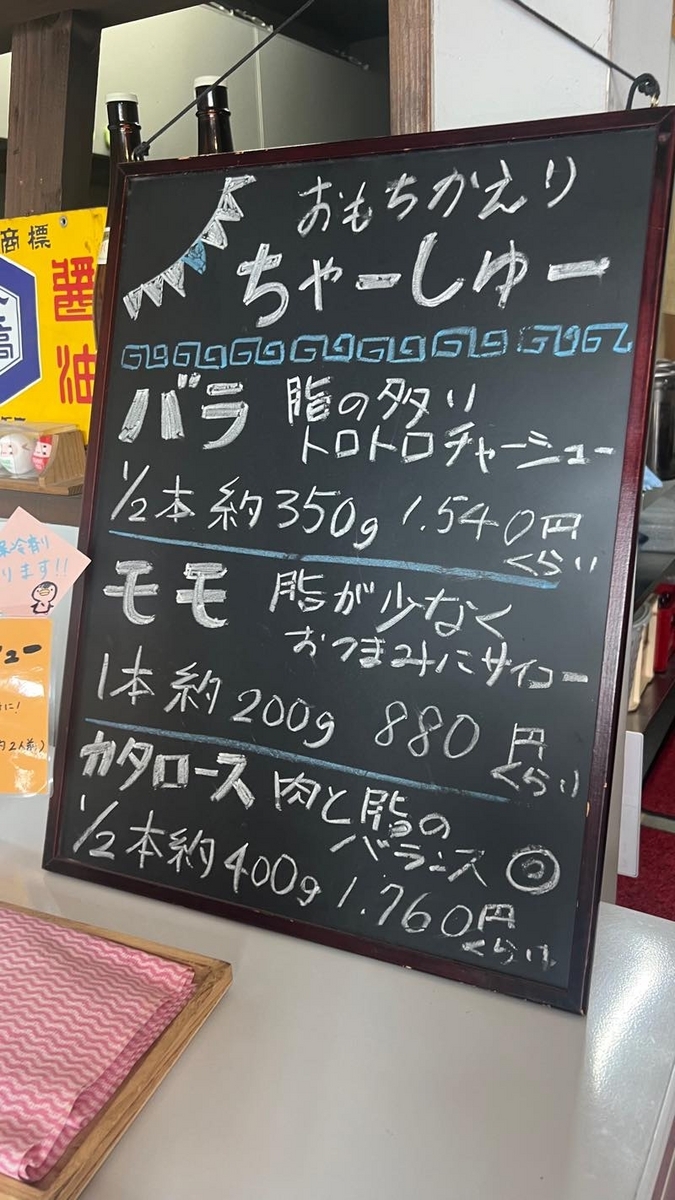 おもちかえり
ちゃーしゅー
バラ 脂の多タリ
トロトロチャーシュー
1/2本 約350g 1.540円
くらい
モモ 脂が少なく
おつまみにサイコー
1本 約200g 880円
くらい
カタロース 肉と脂の
バランス◎
1/2本 約400g 1.760円
くらい
商標
醤油
保冷剤
ります!!
ュー
に!
約2人前)